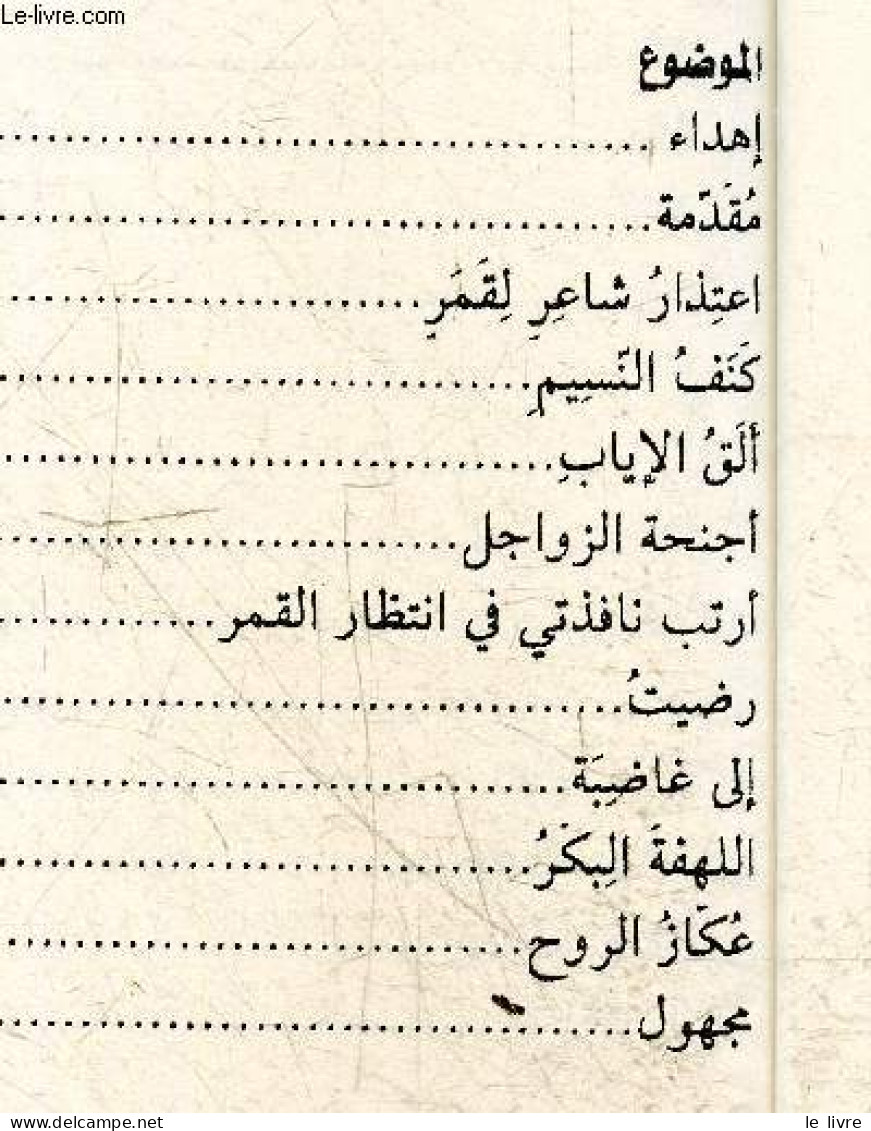 Le-livre.com
الموضوع
إهداء ........................................
مُقَدّمة ........................................
اعتِذارُ شاعِرٍ لِقَمَرٍ ........................
كَنَفُ النّسِيمِ ................................
ألَقُ الإيابِ ................................
أجنحة الزواجل ............................
أرتب نافذتي في انتظار القمر .............
رضيتُ ....................................
إلى غاضِبَة ................................
اللهفةَ البِكْرُ ................................
عُكّازُ الروح ................................
مجهول ....................................
www.delcampe.net
le livre